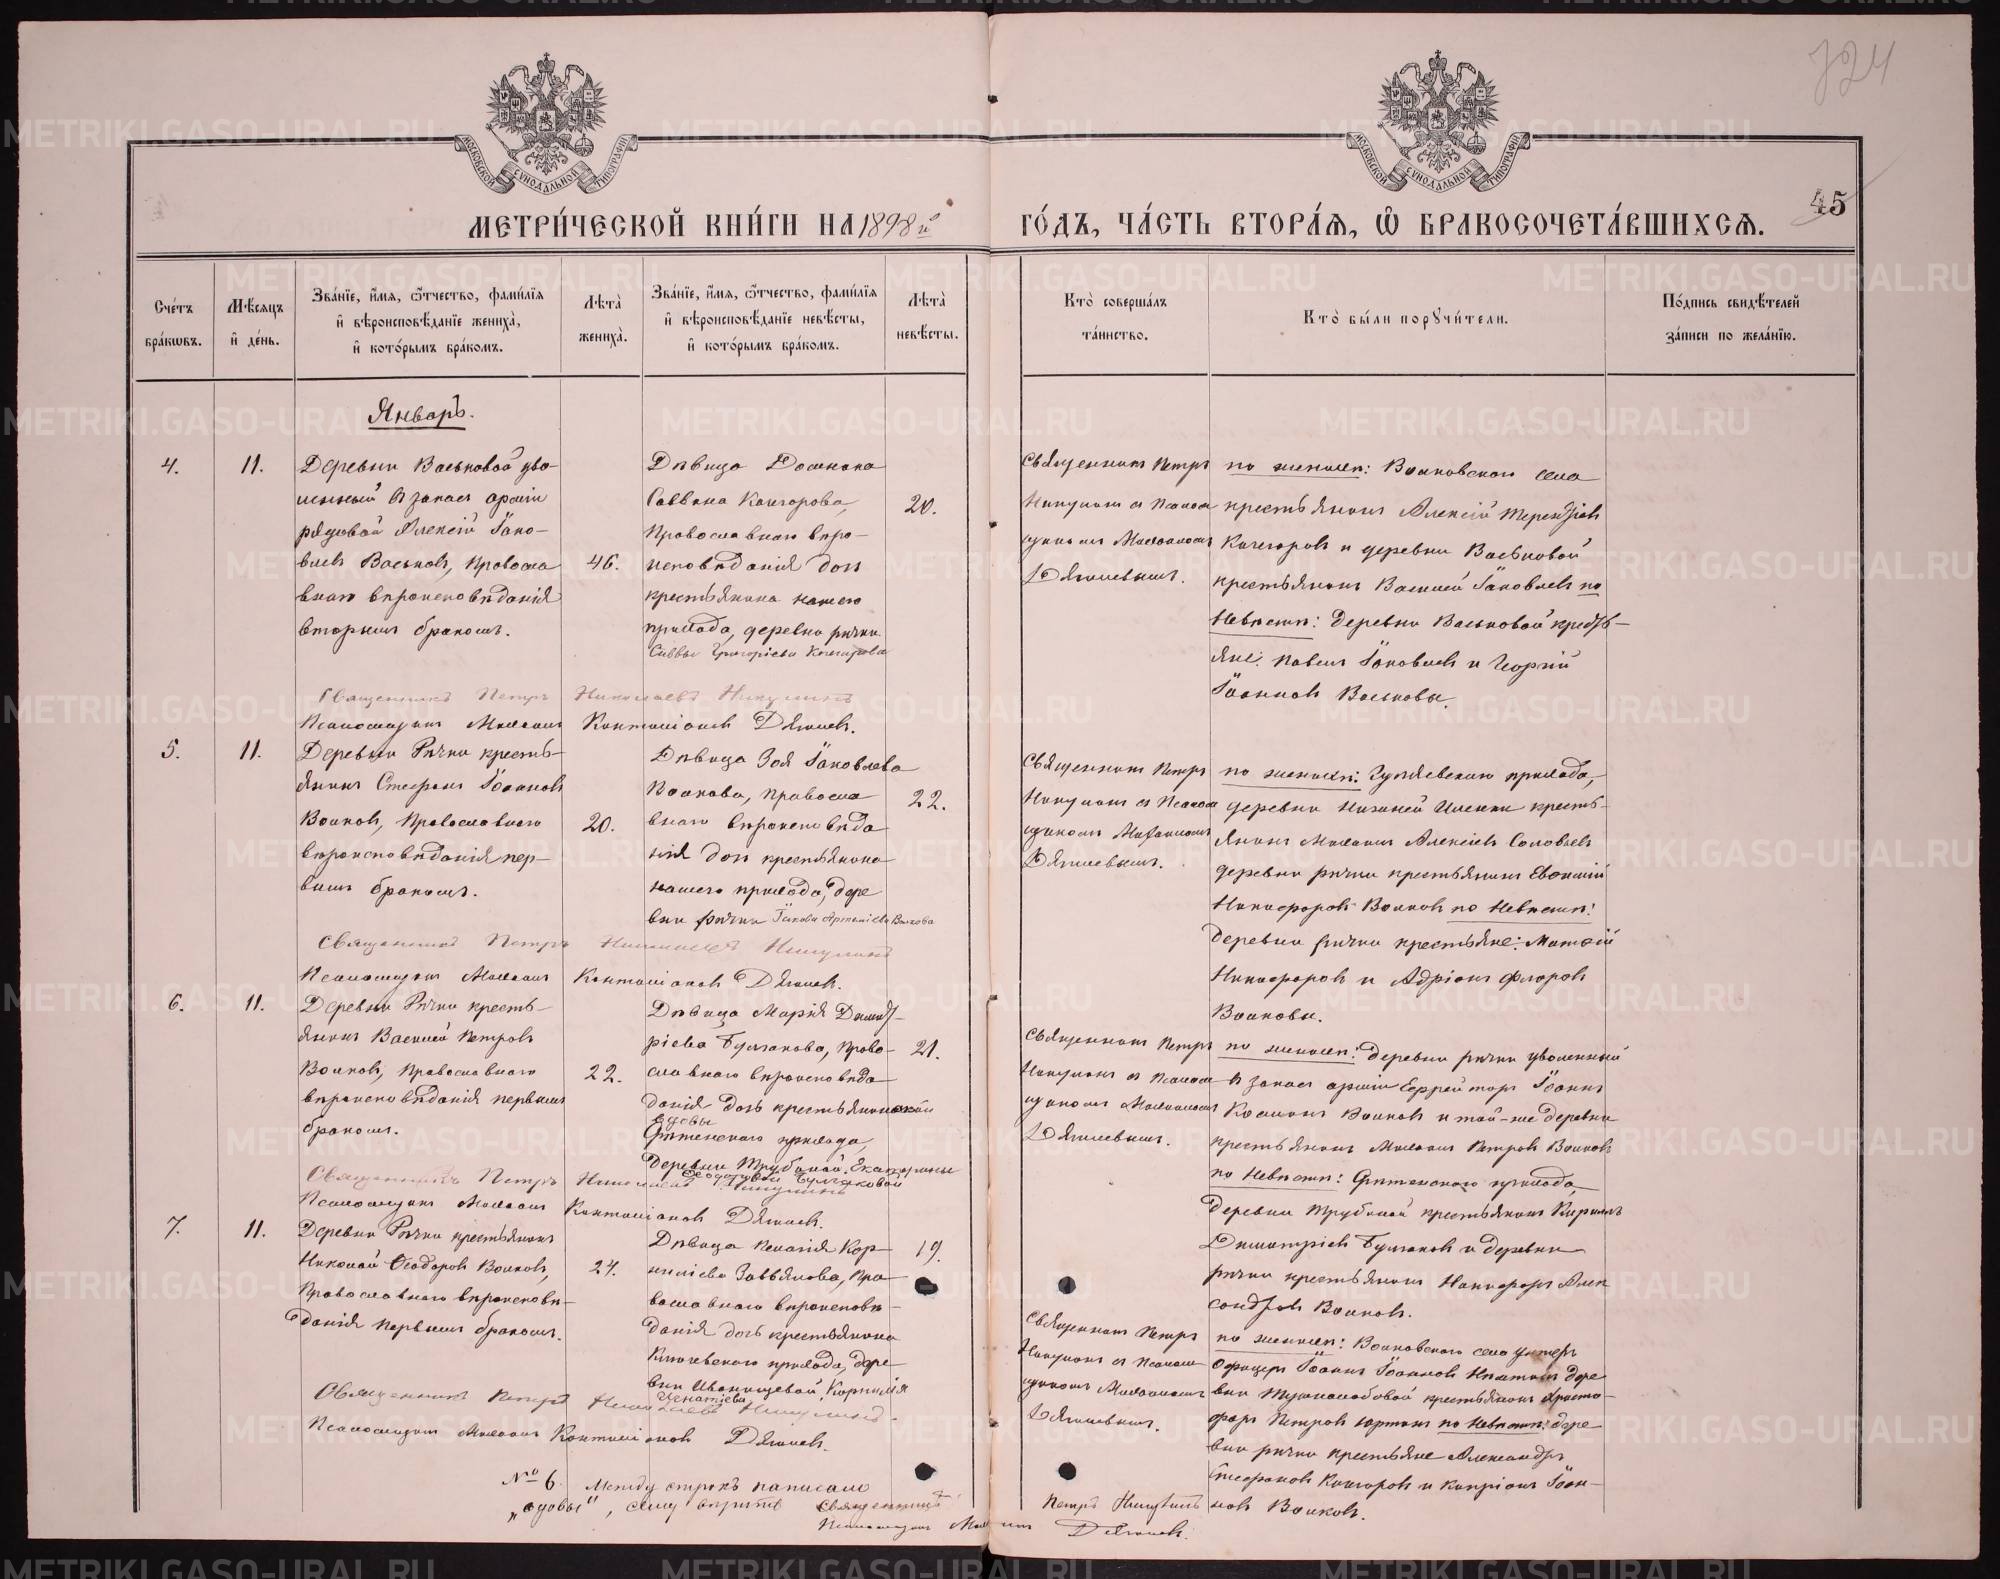 724
МОСКОВСКОЙ СУНОДАЛЬНОЙ ТИПОГРАФІИ
МОСКОВСКОЙ СУНОДАЛЬНОЙ ТИПОГРАФІИ
45
МЕТРИ́ЧЕСКОЙ КНИ́ГИ НА 1898й ГО́ДЪ, ЧА́СТЬ ВТОРА́Я, Ѡ БРАКОСОЧЕТА́ВШИХСЯ.
Сче́тъ бра́кѡвъ.
Мѣ́сяцъ и де́нь.
Зва́нїе, и́мя, ѻ́тчество, фамилїя
и вѣроисповѣ́данїе жениха̀,
и кото́рымъ бра́комъ.
Лѣта̀ жениха̀.
Зва́нїе, и́мя, ѻ́тчество, фамилїя
и вѣроисповѣ́данїе невѣ́сты,
и кото́рымъ бра́комъ.
Лѣта̀ невѣ́сты.
Кто̀ соверша́лъ
та́инство.
Кто̀ бы́ли поручи́тели.
По́дпись свидѣ́телей
за́писи по жела́нїю.
Январь.
4.
11.
Деревни Васьковой уво-
ленный в запас арміи
рядовой Алексій Іако-
влев Васьков, Правосла
внаго вѣроисповѣданія
вторым браком.
46.
Дѣвица
Саввина Качгорова,
Православнаго вѣро-
исповѣданія дочь
крестьянина нашего
прихода, деревни рѣчки
Саввы Григоріева Качгорова
20.
Священник Петр
Никулин с Псалом
щиком Михаилом
Дягилевым.
по женихѣ: Волковскаго села
крестьянин Алексій Терентіев
Качгоров и деревни Васьковой
крестьянин Василий Іаковлев по
невѣстѣ: Деревни Васьковой кресть-
яне: Павел Іаковлев и Георгій
Іоаннов Васьковы.
Священникъ Петръ Николаевъ Никулинъ
Псаломщик Михаил Дягилев.
5.
11.
Деревни Рѣчки кресть-
янин Стефан Іоаннов
Волков, Православнаго
вѣроисповѣданія пер-
вым браком.
20.
Дѣвица Зоя Іаковлева
Волкова, Правосла
внаго вѣроисповѣда
нія дочь крестьянина
нашего прихода, дере
вни рѣчки Іакова Артеміева Волкова
22.
Священник Петр
Никулин с Псалом
щиком Михаилом
Дягилевым.
по женихѣ: прихода,
деревни Нижней кресть-
янин Михаил Алексіев Соловьев
деревни рѣчки крестьянин
Никифоров Волков по невѣстѣ:
Деревни рѣчки крестьяне: Матѳій
Никифоров и Адріан Флоров
Волковы.
Священникъ Петръ Николаевъ Никулинъ
Псаломщик Михаил Дягилев.
6.
11.
Деревни Рѣчки кресть-
янин Василий Петров
Волков, Православнаго
вѣроисповѣданія первым
браком.
22.
Дѣвица Марія Димит-
ріева Булгакова, Право-
славнаго вѣроисповѣ
данія дочь крестьянской
вдовы
прихода,
Деревни Трубиной Екатерины
Ѳеодотовой Булгаковой
21.
Священник Петр
Никулин с Псалом
щиком Михаилом
Дягилевым.
по женихѣ: Деревни рѣчки уволенный
в запас арміи Ефрейтор Іоанн
Волков и той-же деревни
крестьянин Михаил Петров Волков
по невѣстѣ: прихода,
Деревни Трубиной крестьянин Кирилл
Димитріев Булгаков и деревни
рѣчки крестьянин Никифор Алек
сандров Волков.
Священникъ Петръ Николаевъ Никулинъ
Псаломщик Михаил Дягилев.
7.
11.
Деревни Рѣчки крестьянин
Николай Ѳеодоров Волков,
Православнаго вѣроисповѣ-
данія первым браком.
24.
Дѣвица Пелагія Кор-
ниліева Завьялова, Пра
вославнаго вѣроисповѣ-
данія дочь крестьянина
Ключевскаго прихода, дере
вни Иванищевой, Корнилія
Игнатіева
19.
Священник Петр
Никулин с Псалом
щиком Михаилом
Дягилевым.
по женихѣ: Волковскаго села унтер
офицер Іоанн Іоаннов дере
вни крестьянин Христо-
фор Петров по невѣстѣ: дере
вни рѣчки крестьяне Александр
Стефанов Качгоров и Капріан Іоан-
нов Волков.
Священникъ Петръ Николаевъ Никулинъ
Псаломщик Михаил Дягилев.
№ 6. Между строкъ написано
„вдовы", сему вѣрить Священникъ Петръ Никулинъ
Псаломщик Михаил Дягилев.